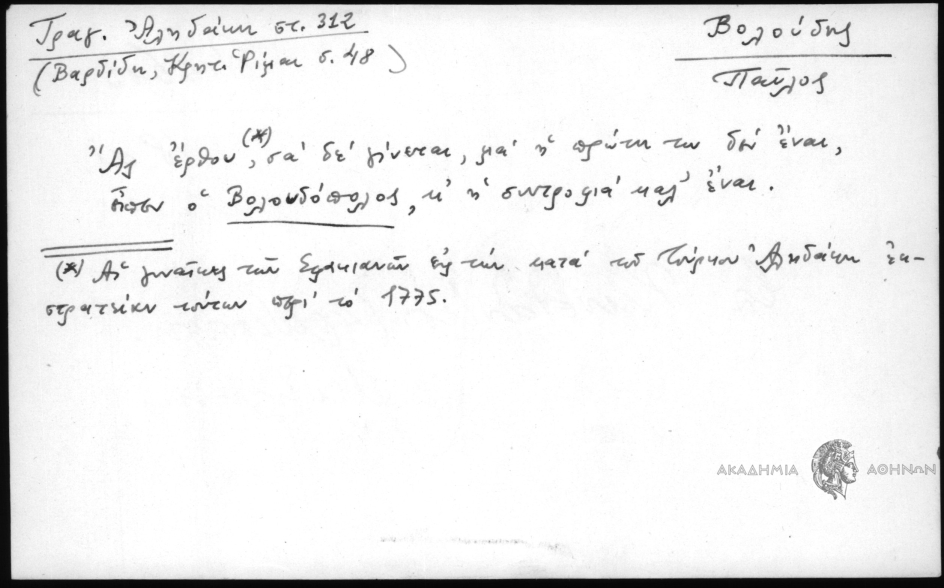 Τραγ. Ἀληδάκη στ. 312
(Βαρδίδη, Κρητ. Ρίμαι σ. 48)
Βολούδης
Παῦλος
Ἄς ἔρθου,(*) σὰ δὲ γίνεται, γιὰ ἡ πρώτη των δὲν ἔναι,
εἶπεν ὁ Βολουδόπολος, κ' ἡ συντροφιὰ καλ' ἔναι.
(*) Αἱ γυναῖκες τῶν Σφακιανῶν εἰς τὴν κατὰ τοῦ Τούρκου Ἀληδάκη ἐκ-
στρατείαν τούτων περὶ τὸ 1775.
ΑΚΑΔΗΜΙΑ ΑΘΗΝΩΝ